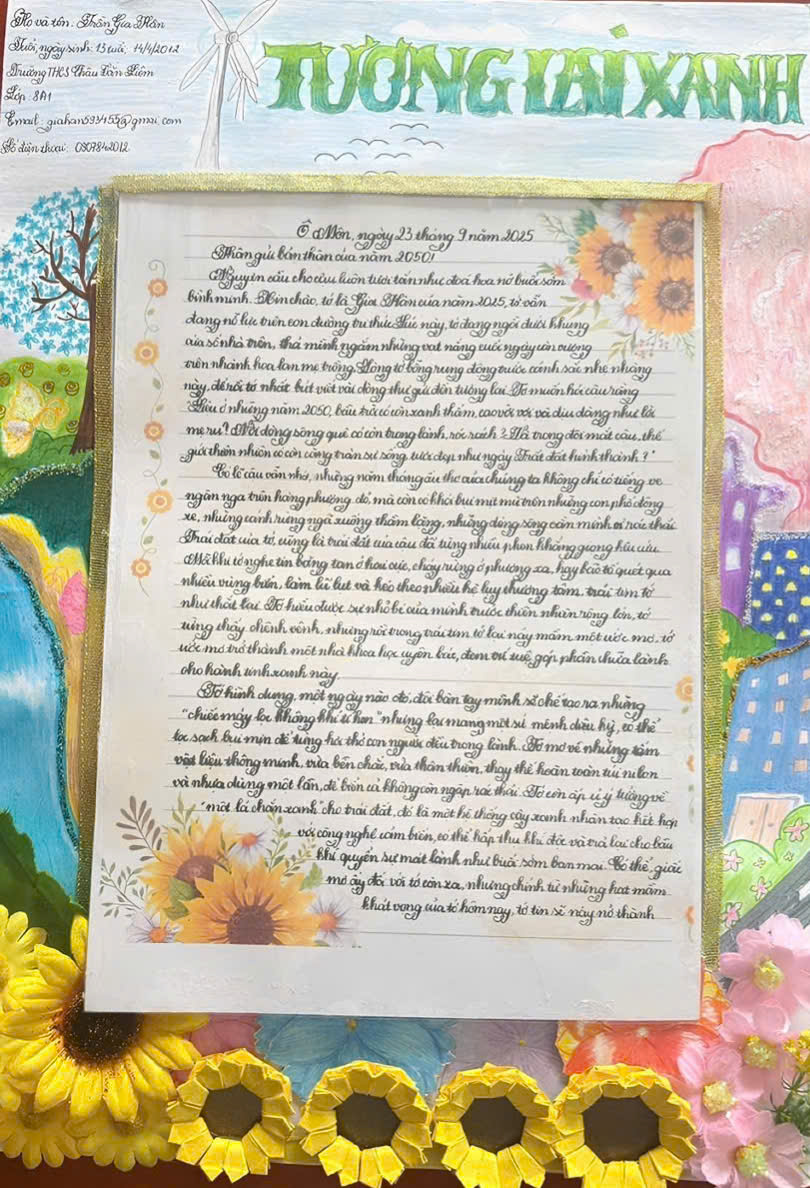 Họ và tên: Trần Gia Hân
Tuổi, ngày sinh: 13 tuổi, 14/4/2012
Trường THCS Châu Văn Liêm
Lớp: 8A1
Email: giahan593455@gmai.com
Số điện thoại: 0907842012
TƯƠNG LAI XANH
Ô Môn, ngày 23 tháng 9 năm 2025
Thân gửi bản thân của năm 2050!
Nguyện cầu cho cậu luôn tươi tắn như đoá hoa nở buổi sớm
bình minh. Xin chào, tớ là Gia Hân của năm 2025, tớ vẫn
đang nỗ lực trên con đường tri thức. Lúc này, tớ đang ngồi dưới khung
cửa sổ nhà trên, thả mình ngắm những vạt nắng cuối ngày còn vương
trên nhành hoa lan mẹ trồng. Lòng tớ bỗng rung động trước cảnh sắc nhẹ nhàng
này, để rồi tớ nhấc bút viết vài dòng thư gửi đến tương lai. Tớ muốn hỏi cậu rằng
"Liệu ở những năm 2050, bầu trời có còn xanh thẳm, cao vời vợi và dịu dàng như lời
mẹ ru? Mỗi dòng sông quê có còn trong lành, róc rách? Và trong đôi mắt cậu, thế
giới thiên nhiên có còn căng tràn sự sống, tươi đẹp như ngày Trái đất hình thành?"
Có lẽ cậu vẫn nhớ, những năm tháng ấu thơ của chúng ta không chỉ có tiếng ve
ngân nga trên hàng phượng đỏ, mà còn có khói bụi mịt mù trên những con phố đông
xe, những cánh rừng ngã xuống thầm lặng, những dòng sông oằn mình vì rác thải.
Trái đất của tớ, cũng là trái đất của cậu đã từng nhiều phen khẳng giọng kêu cứu.
Mỗi khi tớ nghe tin băng tan ở hai cực, cháy rừng ở phương xa, hay bão tố quét qua
nhiều vùng biển, làm lũ lụt và kéo theo nhiều hệ luỵ thương tâm, trái tim tớ
như thắt lại. Tớ hiểu được sự nhỏ bé của mình trước thiên nhiên rộng lớn, tớ
từng thấy chênh vênh, nhưng rồi trong trái tim tớ lại nảy mầm một ước mơ, tớ
ước mơ trở thành một nhà khoa học uyên bác, đem trí tuệ góp phần chữa lành
cho hành tinh xanh này.
Tớ hình dung, một ngày nào đó, đôi bàn tay mình sẽ chế tạo ra những
"chiếc máy lọc không khí tí hon" nhưng lại mang một sứ mệnh diệu kỳ, có thể
lọc sạch bụi mịn để từng hơi thở con người đều trong lành. Tớ mơ về những tấm
vật liệu thông minh, vừa bền chắc, vừa thân thiện, thay thế hoàn toàn túi ni lon
và nhựa dùng một lần, để biển cả không còn ngập rác thải. Tớ còn ấp ủ ý tưởng về
"một lá chắn xanh" cho trái đất, đó là một hệ thống cây xanh nhân tạo kết hợp
với công nghệ cảm biến, có thể hấp thu khí độc và trả lại cho bầu
khí quyển sự mát lành như buổi sớm ban mai. Có thể, giấc
mơ ấy đối với tớ còn xa, nhưng chính từ những hạt mầm
khát vọng của tớ hôm nay, tớ tin sẽ nảy nở thành